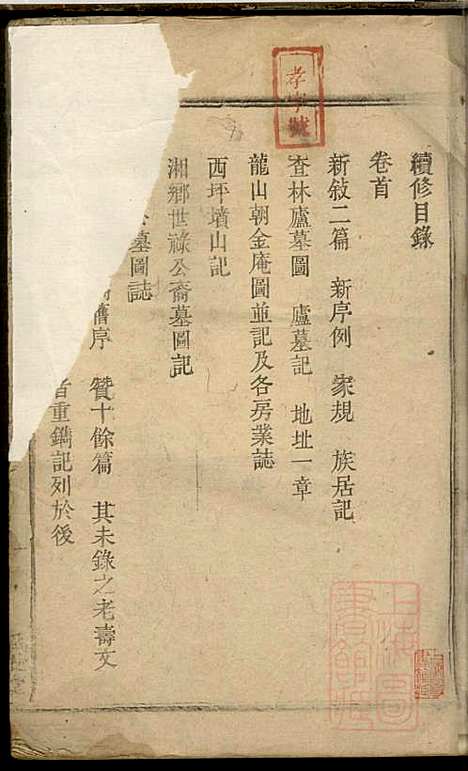 續修目錄
卷首
新敘二篇 新序例 家規 族居記
查林廬墓圖 廬墓記 地址一章
龍山朝金庵圖並記及各房業誌
西坪墳山記
湘鄉世祿公裔墓圖記
墓圖誌
序 贊十餘篇 其未錄之老壽文
者重鐫記列於後
孝字號
上海圖書館藏